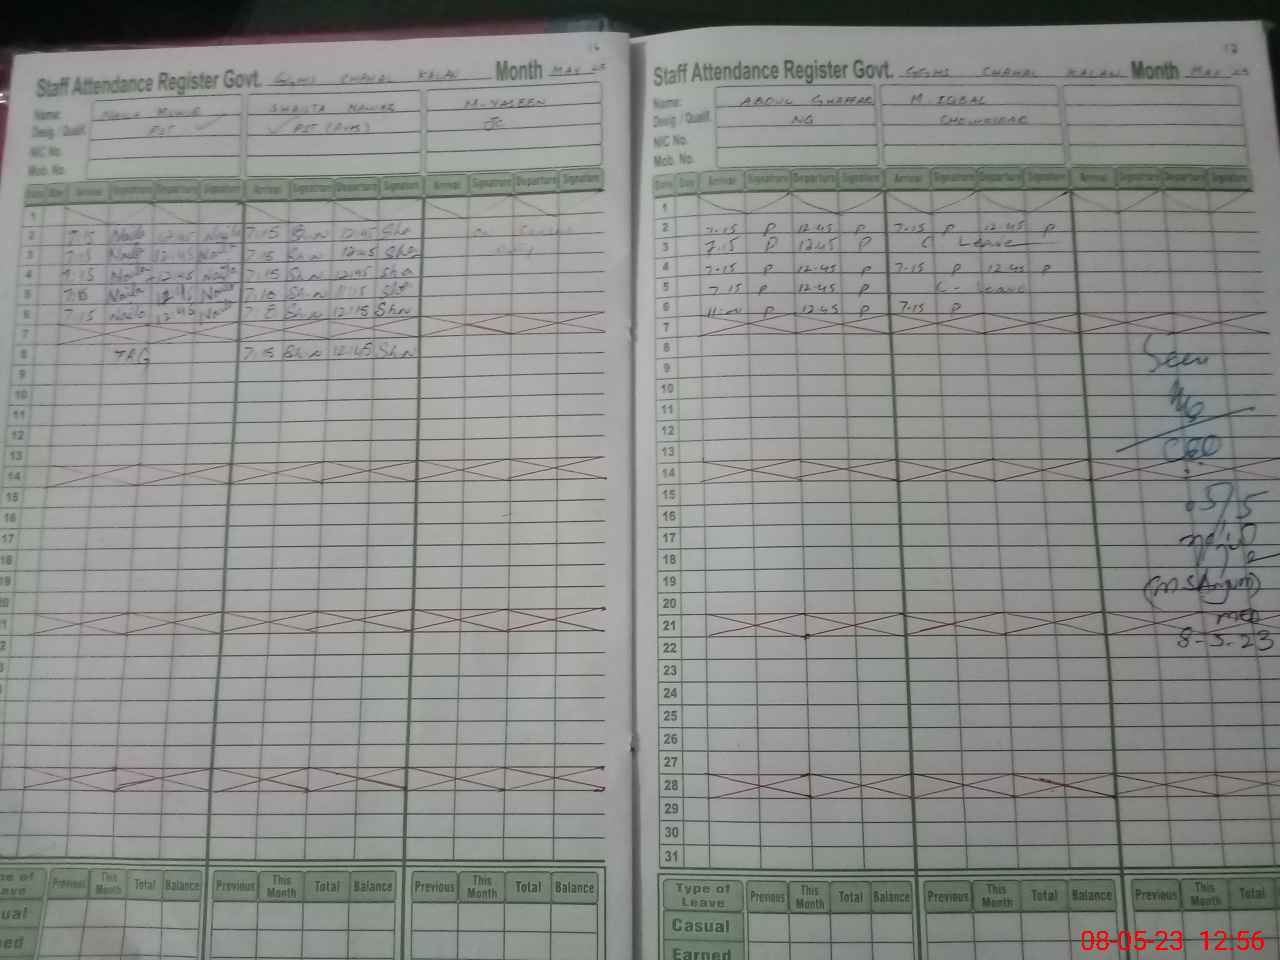 16
Staff Attendance Register Govt. GGHS CHAHAL KALAN Month MAY 23
Name: SHAISTA NAWAZ M. YASEEN
Desig. / Qualif. PST PST JC
NIC No.
Mob. No.
Date Day Arrival Signature Departure Signature Arrival Signature Departure Signature Arrival Signature Departure Signature
1
2 7:15 Naila 12:45 Naila 7:15 Sha 12:45 Sha on
3 7:15 Naila 12:45 Naila 7:15 Sha 12:45 Sha Duty
4 7:15 Naila 12:45 Naila 7:15 Sha 12:45 Sha
5 7:15 Naila 12:45 Naila 7:15 Sha Sha
6 7:15 Naila 12:45 Naila Sha 12:15 Sha
7
8 7:15 Sha 12:45 Sha
9
10
11
12
13
14
15
16
17
18
19
20
21
Previous This Month Total Balance Previous This Month Total Balance Previous This Month Total Balance
Staff Attendance Register Govt. GGHS CHAHAL KALAN Month MAY 23
Name: ABDUL GHAFFAR M. IQBAL
Desig. / Qualif. NQ CHOWKIDAR
NIC No.
Mob. No.
Date Day Arrival Signature Departure Signature Arrival Signature Departure Signature Arrival Signature Departure Signature
1
2 7-15 P 12-45 P 7-15 P 12-45 P
3 7.15 P 12.45 P C Leave
4 7-15 P 12-45 P 7-15 P 12-45 P
5 7.15 P 12.45 P C - Leave
6 P 12.45 P 7-15 P
7
8 Seen
9
10
11
12
13 CEO
14
15 05/5
16
17
18
19
20
21
22 8-5-23
23
24
25
26
27
28
29
30
31
Type of Leave Previous This Month Total Balance Previous This Month Total Balance Previous This Month Total
Casual
Earned
08-05-23 12:56